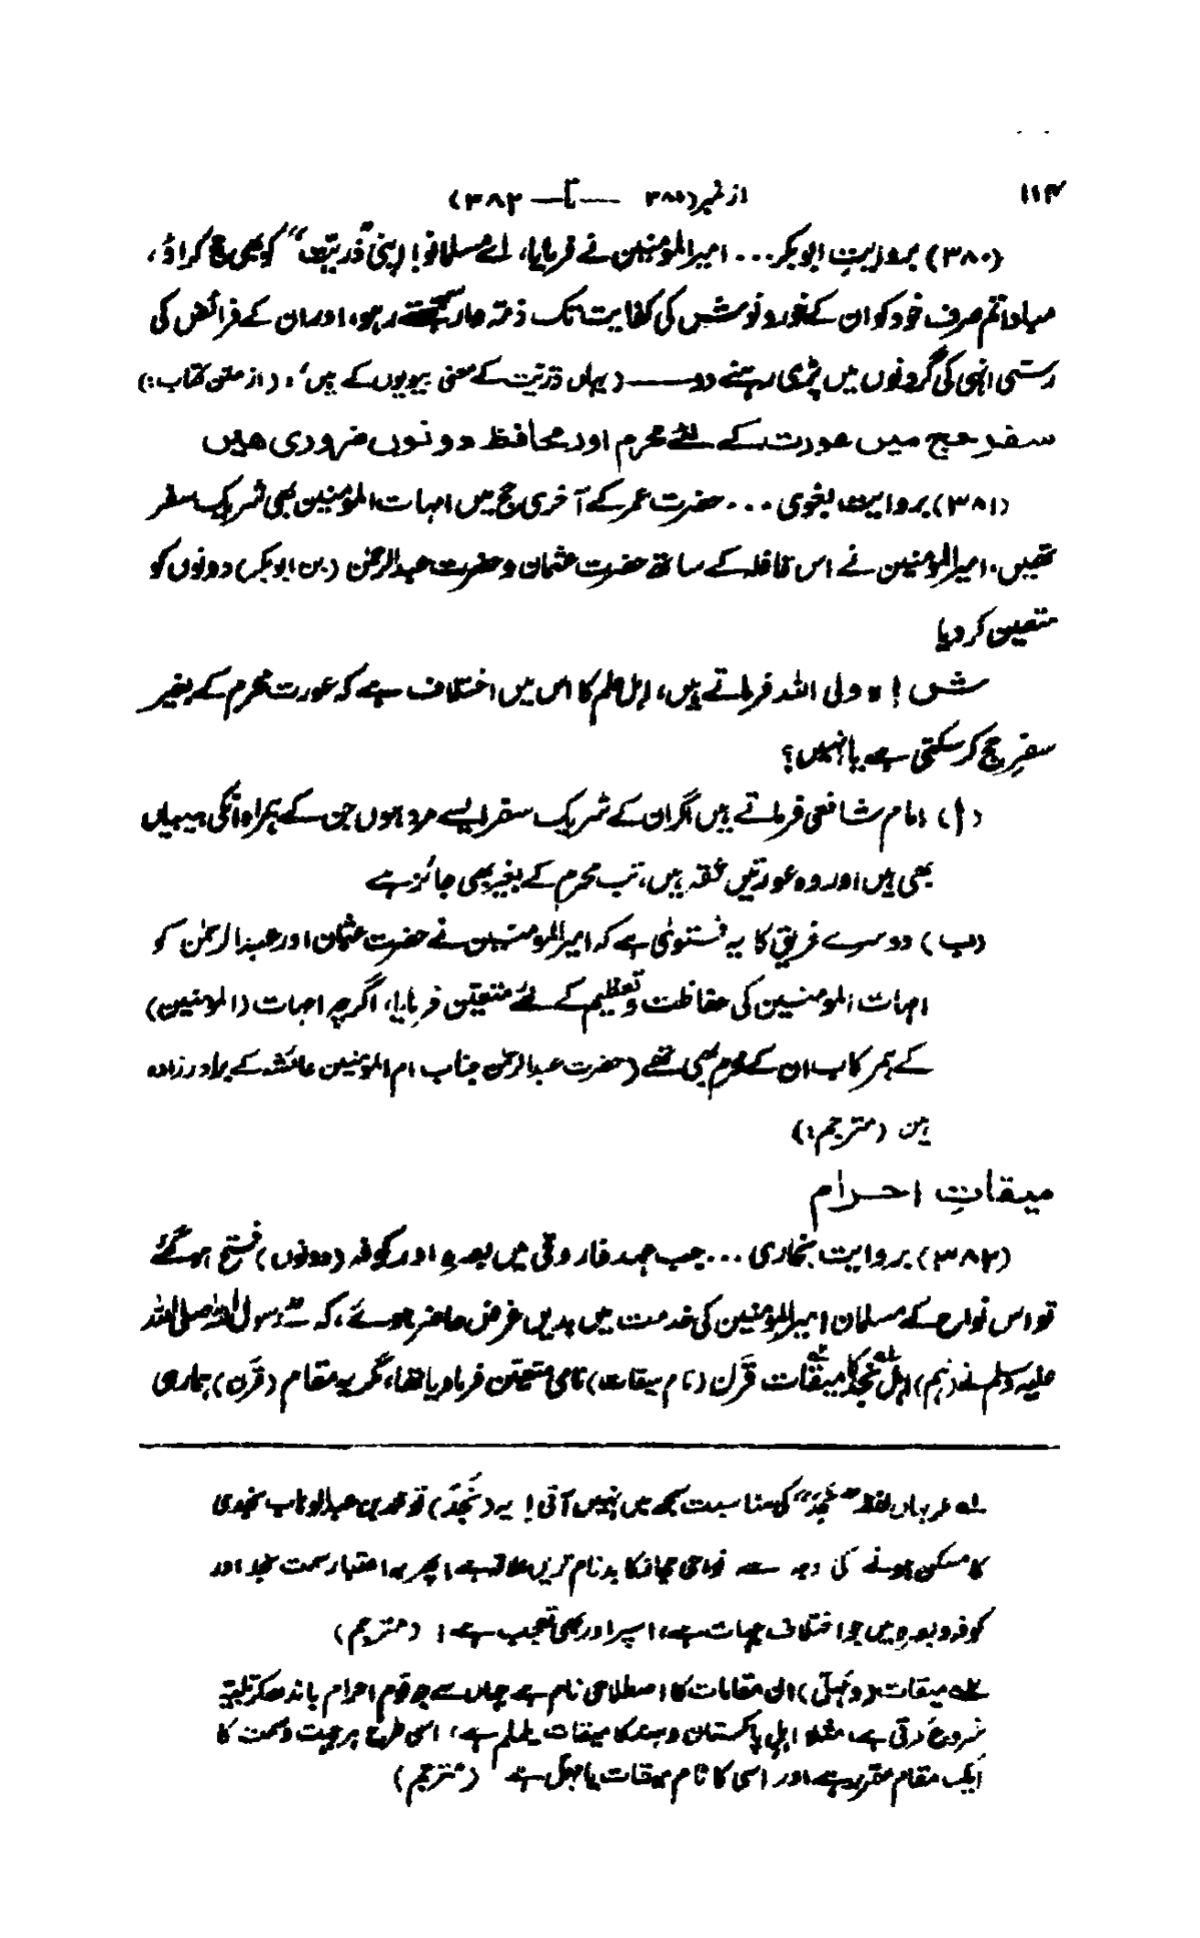 ۱۱۴ از نمبر (۳۸۰ — تا — ۳۸۲)
(۳۸۰) بروایتِ ابوبکر... امیرالمؤمنین نے فرمایا، اے مسلمانو! اپنی "ذریّت" کو بھی حج کراؤ،
مبادا تم صرف خود کو ان کے خور و نوش کی کفایت تک ذمہ دار سمجھتے رہو، اور ان کے فرائض کی
رسّی انہی کی گردنوں میں پڑی رہنے دو — (یہاں ذریّت کے معنی بیویوں کے ہیں، : (از متن کتاب:)
سفرِ حج میں عورت کے لئے محرم اور محافظ دونوں ضروری ہیں
(۳۸۱) بروایت بغوی... حضرت عمر کے آخری حج میں امہات المؤمنین بھی شریک سفر
تھیں، امیرالمؤمنین نے اس قافلہ کے ساتھ حضرت عثمان و حضرت عبدالرحمٰن (بن ابوبکر) دونوں کو
متعین کر دیا
ش! ہ ولی اللہ فرماتے ہیں، اہل علم کا اس میں اختلاف ہے کہ عورت محرم کے بغیر
سفرِ حج کر سکتی ہے یا نہیں؟
(أ) امام شافعی فرماتے ہیں اگر ان کے شریک سفر ایسے مرد ہوں جن کے ہمراہ انکی بیبیاں
بھی ہیں اور وہ عورتیں ثقہ ہیں، تب محرم کے بغیر بھی جائز ہے
(ب) دوسرے فریق کا یہ فتویٰ ہے کہ امیرالمومنین نے حضرت عثمان اور عبدالرحمٰن کو
امہات المومنین کی حفاظت و تعظیم کے لئے متعیّن فرمایا، اگرچہ امہات (المومنین)
کے ہمرکاب ان کے محرم بھی تھے (حضرت عبدالرحمٰن جناب ام المؤمنین عائشہ کے برادر زادہ
ہیں (مترجم:)
میقاتِ احرام
(۳۸۲) بروایت بخاری... جب عہد فاروقی میں بصرہ اور کوفہ (دونوں) فتح ہو گئے
تو اس نواح کے مسلمان امیرالمؤمنین کی خدمت میں بدیں غرض حاضر ہوئے، کہ رسول اللہ صلی اللہ
علیہ وسلم نے (ہم) اہلِ نجدؔ کا میقات قَرن (نام میقات) نامی متعیّن فرما دیا تھا، مگر یہ مقام (قَرن) ہماری
لہ یہاں لفظ "نجد" کی مناسبت سمجھ میں نہیں آتی! یہ (نَجد) تو محمد بن عبدالوہاب نجدی
کا مسکن ہونے کی وجہ سے نواحی حجاز کا بدنام ترین علاقہ ہے، پھر بہ اعتبار سمت نجد اور
کوفہ و بصرہ میں جو اختلاف جہات ہے، اسپر اور بھی تعجب ہے! (مترجم)
میقات ان مقامات کا اصطلاحی نام ہے جہاں سے جو قوم احرام باندھ کر تلبیہ
شروع کرتی ہے، مثلا اہلِ پاکستان و ہند کا میقات یلملم ہے، اسی طرح ہر جہت و سمت کا
ایک مقام مقرر ہے اور اسی کا نام میقات ہے (مترجم)